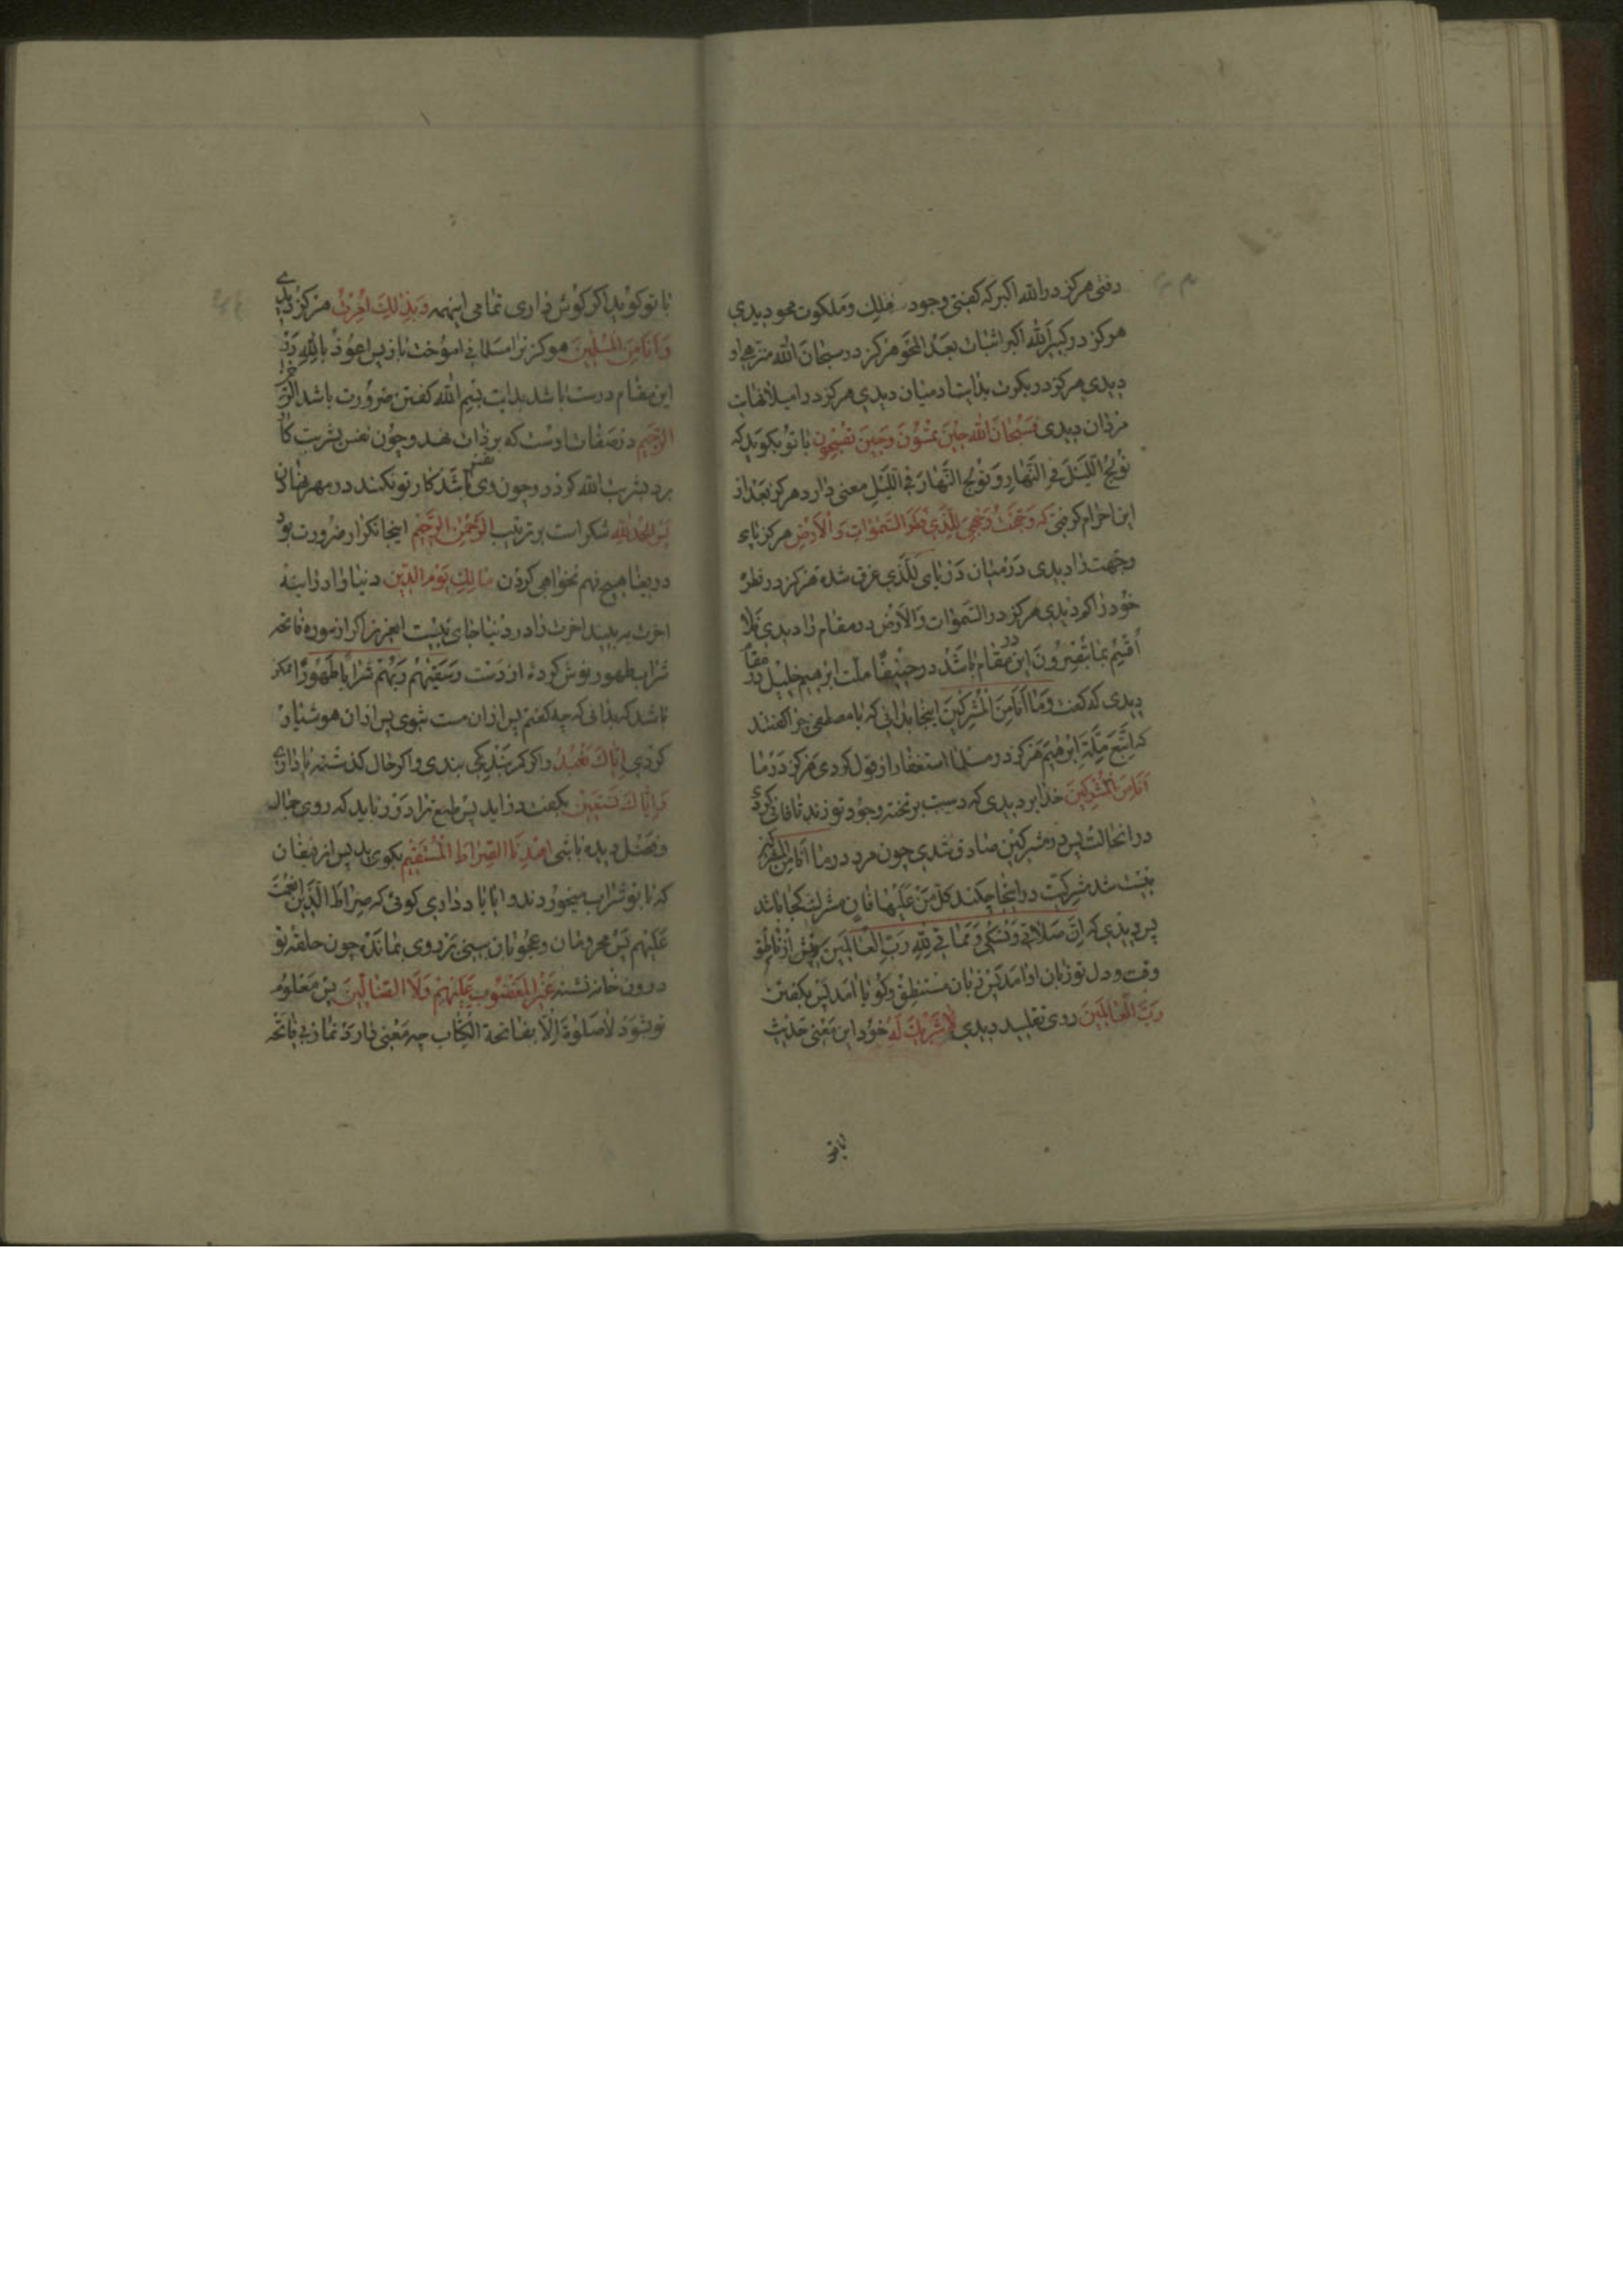 رفتی هرکز در الله اکبر که کفتی وجود ملک و ملکوت محو دیدی
هرکز در کبیر الله اکبر اثبات بعد المحو هرکز در سبحان الله منزهی او
دیدی هرکز در بکرت بدایت ادمیان دیدی هرکز در اصیلا نهایت
مردان دیدی فسبحان الله حین تمسون وحین تصبحون با تو بکوید که
تولج اللیل فی النهار و تولج النهار فی اللیل معنی دارد هرکز بعد از
این احرام کرفتی که وجهت وجهی للذی فطر السموات والارض هرکز یاء
وجهت را دیدی در میان دریای للذی غرق شده هرکز در فطر
خود را کم دیدی هرکز در السموات والارض در مقام را دیدی فلا
اقسم بما تبصرون این مقام باشد در حنیفا ملت ابرهیم خلیل در مقام
دیدی که کفت وما انا من المشرکین اینجا بدانی که با مصطفی چرا کفتند
که اتبع ملة ابرهیم هرکز در مسلما استغفار از قول کردی هرکز در ما
انا من المشرکین خدا بر دیدی که دست بر تخته وجود تو زند تا فانی کردی
در انحالت پس در مشرکین صادق شدی چون مرد در ما انا من المشرکین
نیست شد شرکت در اینجا چکند کل من علیها فان شرک کجا باشد
پس دیدی که ان صلاتی ونسکی ومماتی لله رب العالمین
وقت و دل تو زبان او امد پس زبان مستنطق وکویا امد پس بکفتن
رب العالمین روی تقلید دیدی لا شریک له خود این معنی حدیث
باتو
با تو کوید اکر کوش داری تمامی اینهمه وبذلک امرت هرکز دیدی
وانا من المسلمین هرکز ترا مسلمانی اموخت باز پس اعوذ بالله در
این مقام درست باشد بدایت بسم الله کفتن ضرورت باشد الرحمن
الرحیم در صفات اوست که بر ذات نهد وچون نفس بشریت کار
برد بشربت الله کرد و چون نفس دی باشد کار تو نکنند در مهر
پس الحمد لله شکر است بر ترتیب الرحمن الرحیم اینجا تکرار ضرورت بود
دریغا هیچ فهم نخواهی کردن مالک یوم الدین دنیا را
اخرت به بیند اخرت را در دنیا جای نیست ایعزیز اکر از سوره فاتحه
شراب طهور نوش کرده از دست وسقیهم ربهم شرابا طهورا مکر
باشد که بدانی که چه کفتم پس ازان مست شوی پس ازان هوشیار
کردی ایاک نعبد واکر کمر بندکی بندی واکر حال کذشته
وایاک نستعین بکفت دراید پس طمع ترا در وباید که روی جمال
وفضل دیده باشی اهدنا الصراط المستقیم بکوی پس از رفیقان
که با تو شراب میخوردند وایا یاد داری کوئی که صراط الذین انعمت
علیهم پس محرومان ومحجوبان بینی بر روی بمانده چون حلقه تو
درون خانه نشسته غیر المغضوب علیهم ولا الضالین پس معلوم
تو شود لا صلوة الا بفاتحة الکتاب چه معنی دارد نماز بی فاتحه